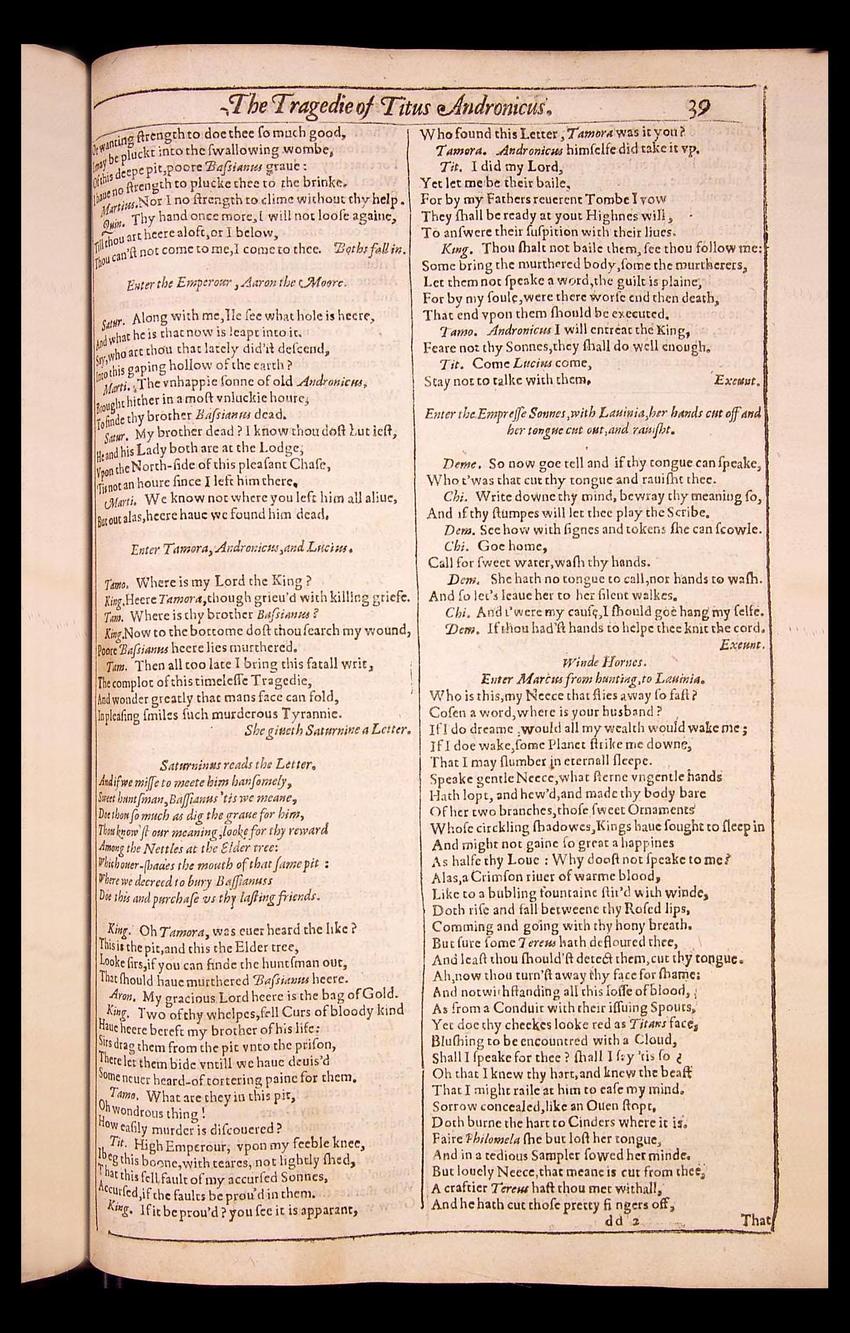 The Tragedie of Titus Andronicus. 39
Or wanting ſtrength to doe thee ſo much good,
I may be pluckt into the ſwallowing wombe,
Of this deepe pit, poore Baſsianus graue:
I haue no ſtrength to plucke thee to the brinke.
Martius. Nor I no ſtrength to clime without thy help.
Quin. Thy hand once more, I will not looſe againe,
Till thou art heere aloft, or I below,
Thou can'ſt not come to me, I come to thee. Boths fall in.
Enter the Emperour, Aaron the Moore.
Satur. Along with me, Ile ſee what hole is heere,
And what he is that now is leapt into it.
Say, who art thou that lately did'ſt deſcend,
Into this gaping hollow of the earth?
Marti. The vnhappie ſonne of old Andronicus,
Brought hither in a moſt vnluckie houre,
To finde thy brother Baſsianus dead.
Satur. My brother dead? I know thou doſt but ieſt,
He and his Lady both are at the Lodge,
Vpon the North-ſide of this pleaſant Chaſe,
'Tis not an houre ſince I left him there.
Marti. We know not where you left him all aliue,
But out alas, heere haue we found him dead.
Enter Tamora, Andronicus, and Lucius.
Tamo. Where is my Lord the King?
King. Heere Tamora, though grieu'd with killing griefe.
Tam. Where is thy brother Baſsianus?
King. Now to the bottome doſt thou ſearch my wound,
Poore Baſsianus heere lies murthered.
Tam. Then all too late I bring this fatall writ,
The complot of this timeleſſe Tragedie,
And wonder greatly that mans face can fold,
In pleaſing ſmiles ſuch murderous Tyrannie.
She giueth Saturnine a Letter.
Saturninus reads the Letter.
And if we miſſe to meete him hanſomely,
Sweet huntſman, Baſsianus 'tis we meane,
Doe thou ſo much as dig the graue for him,
Thou know'ſt our meaning, looke for thy reward
Among the Nettles at the Elder tree:
Which ouer-ſhades the mouth of that ſame pit:
Where we decreed to bury Baſsianuss
Doe this and purchaſe vs thy laſting friends.
King. Oh Tamora, was euer heard the like?
This is the pit, and this the Elder tree,
Looke ſirs, if you can finde the huntſman out,
That ſhould haue murthered Baſsianus heere.
Aron. My gracious Lord heere is the bag of Gold.
King. Two of thy whelpes, fell Curs of bloody kind
Haue heere bereft my brother of his life:
Sirs drag them from the pit vnto the priſon,
There let them bide vntill we haue deuis'd
Some neuer heard-of tortering paine for them.
Tamo. What are they in this pit,
Oh wondrous thing!
How eaſily murder is diſcouered?
Tit. High Emperour, vpon my feeble knee,
I beg this boone, with teares, not lightly ſhed,
That this fell fault of my accurſed Sonnes,
Accurſed, if the faults be prou'd in them.
King. If it be prou'd? you ſee it is apparant,
Who found this Letter, Tamora was it you?
Tamora. Andronicus himſelfe did take it vp.
Tit. I did my Lord,
Yet let me be their baile,
For by my Fathers reuerent Tombe I vow
They ſhall be ready at yout Highnes will,
To anſwere their ſuſpition with their liues.
King. Thou ſhalt not baile them, ſee thou follow me:
Some bring the murthered body, ſome the murtherers,
Let them not ſpeake a word, the guilt is plaine,
For by my ſoule, were there worſe end then death,
That end vpon them ſhould be executed.
Tamo. Andronicus I will entreat the King,
Feare not thy Sonnes, they ſhall do well enough.
Tit. Come Lucius come,
Stay not to talke with them. Exeunt.
Enter the Empreſſe Sonnes, with Lauinia, her hands cut off and
her tongue cut out, and rauiſht.
Deme. So now goe tell and if thy tongue can ſpeake,
Who t'was that cut thy tongue and rauiſht thee.
Chi. Write downe thy mind, bewray thy meaning ſo,
And if thy ſtumpes will let thee play the Scribe.
Dem. See how with ſignes and tokens ſhe can ſcowle.
Chi. Goe home,
Call for ſweet water, waſh thy hands.
Dem. She hath no tongue to call, nor hands to waſh.
And ſo let's leaue her to her ſilent walkes.
Chi. And t'were my cauſe, I ſhould goe hang my ſelfe.
Dem. If thou had'ſt hands to helpe thee knit the cord.
Exeunt.
Winde Hornes.
Enter Marcus from hunting, to Lauinia.
Who is this, my Neece that flies away ſo faſt?
Coſen a word, where is your husband?
If I do dreame, would all my wealth would wake me;
If I doe wake, ſome Planet ſtrike me downe,
That I may ſlumber in eternall ſleepe.
Speake gentle Neece, what ſterne vngentle hands
Hath lopt, and hew'd, and made thy body bare
Of her two branches, thoſe ſweet Ornaments
Whoſe circkling ſhadowes, Kings haue ſought to ſleep in
And might not gaine ſo great a happines
As halfe thy Loue: Why dooſt not ſpeake to me?
Alas, a Crimſon riuer of warme blood,
Like to a bubling fountaine ſtir'd with winde,
Doth riſe and fall betweene thy Roſed lips,
Comming and going with thy hony breath.
But ſure ſome Tereus hath defloured thee,
And leaſt thou ſhould'ſt detect them, cut thy tongue.
Ah, now thou turn'ſt away thy face for ſhame:
And notwithſtanding all this loſſe of blood,
As from a Conduit with their iſſuing Spouts,
Yet doe thy cheekes looke red as Titans face,
Bluſhing to be encountred with a Cloud,
Shall I ſpeake for thee? ſhall I ſay 'tis ſo?
Oh that I knew thy hart, and knew the beaſt
That I might raile at him to eaſe my mind.
Sorrow concealed, like an Ouen ſtopt,
Doth burne the hart to Cinders where it is.
Faire Philomela ſhe but loſt her tongue,
And in a tedious Sampler ſowed her minde.
But louely Neece, that meane is cut from thee,
A craftier Tereus haſt thou met withall,
And he hath cut thoſe pretty fingers off,
dd 2 That